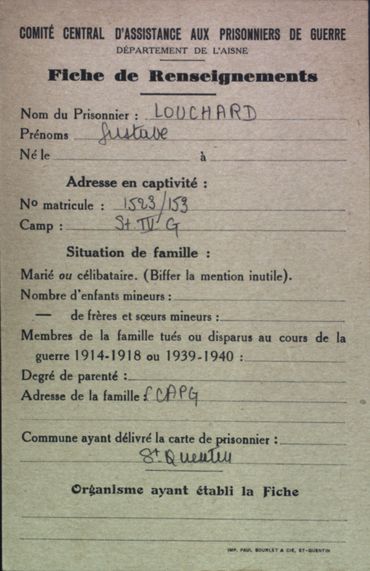 COMITÉ CENTRAL D'ASSISTANCE AUX PRISONNIERS DE GUERRE
DÉPARTEMENT DE L'AISNE
Fiche de Renseignements
Nom du Prisonnier : LOUCHARD
Prénoms Gustave
Né le à
Adresse en captivité :
No matricule : 1523/153
Camp : St IV G
Situation de famille :
Marié ou célibataire. (Biffer la mention inutile).
Nombre d'enfants mineurs :
— de frères et sœurs mineurs :
Membres de la famille tués ou disparus au cours de la
guerre 1914-1918 ou 1939-1940 :
Degré de parenté :
Adresse de la famille : CAPG
Commune ayant délivré la carte de prisonnier :
St Quentin
Organisme ayant établi la Fiche
IMP. PAUL BOURLET & CIE, ST-QUENTIN